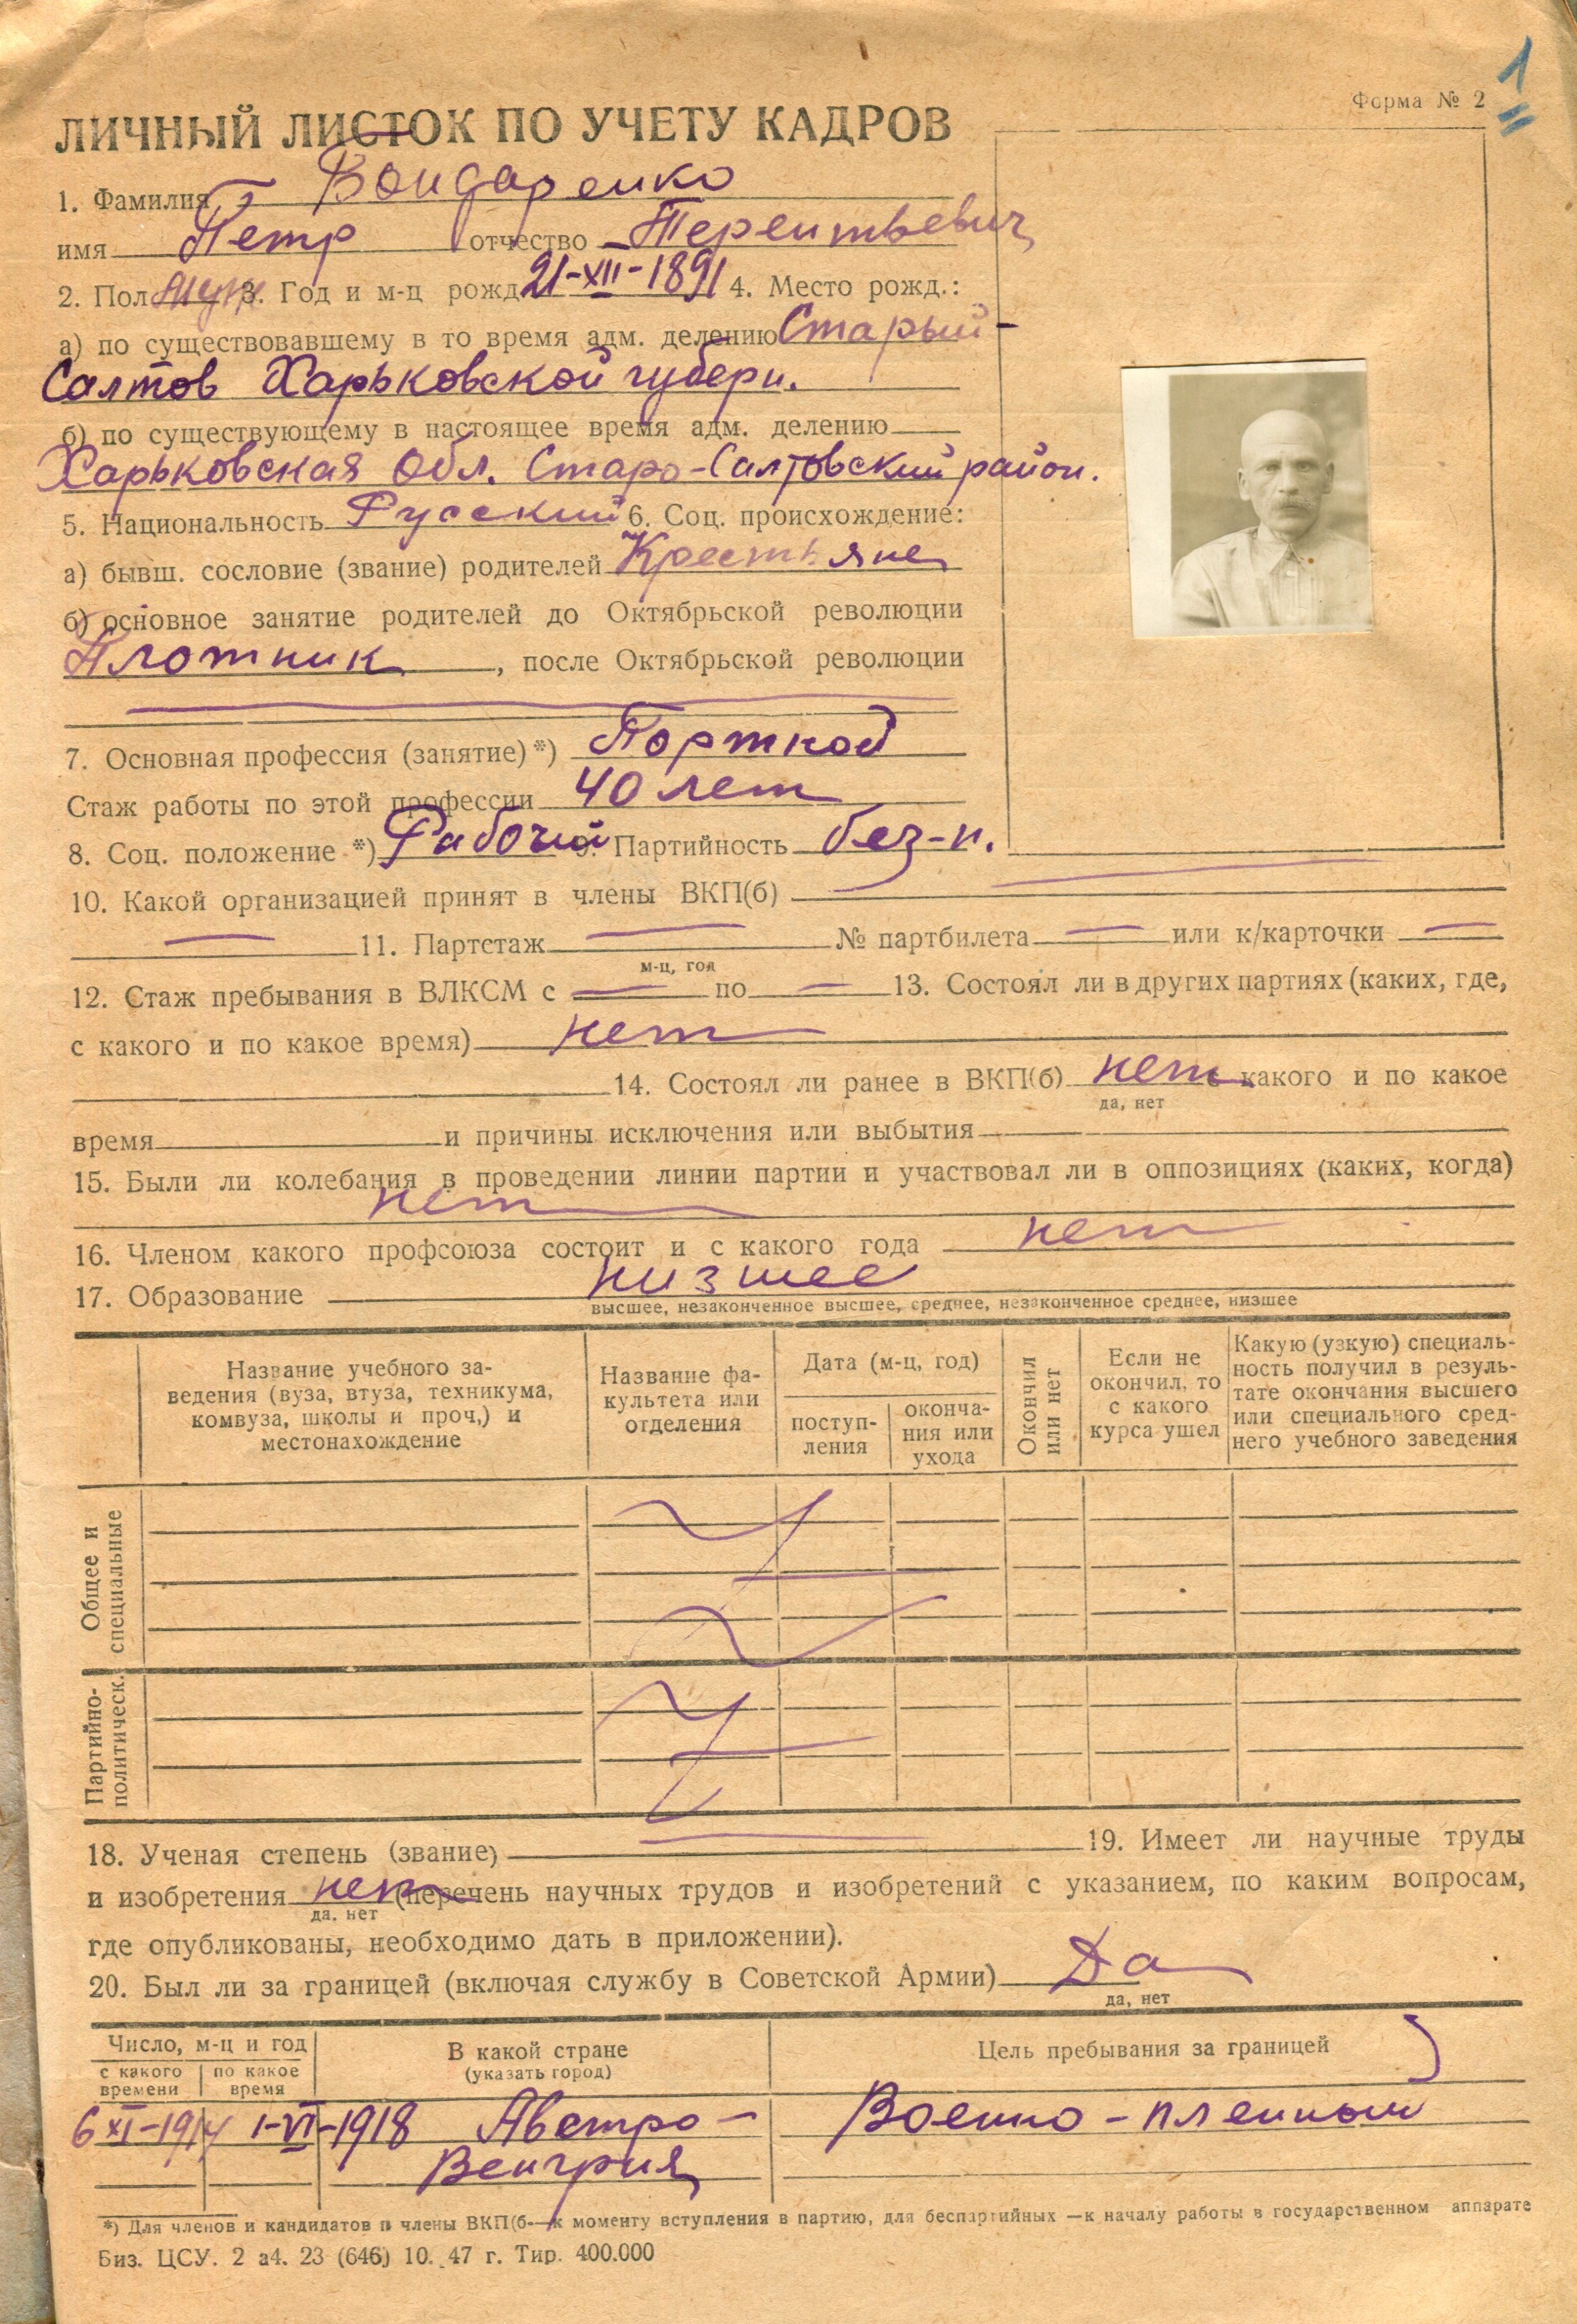 Форма № 2
1
ЛИЧНЫЙ ЛИСТОК ПО УЧЕТУ КАДРОВ
1. Фамилия Бондаренко
имя Петр отчество Терентьевич
2. Пол муж 3. Год и м-ц рожд. 21-XII-1891 4. Место рожд.:
а) по существовавшему в то время адм. делению Старый-
Салтов Харьковской губерн.
б) по существующему в настоящее время адм. делению
Харьковская Обл. Старо-Салтовский район.
5. Национальность Русский 6. Соц. происхождение:
а) бывш. сословие (звание) родителей Крестьяне
б) основное занятие родителей до Октябрьской революции
Плотник, после Октябрьской революции
7. Основная профессия (занятие)*) Портной
Стаж работы по этой профессии 40 лет
8. Соц. положение *) Рабочий 9. Партийность без-п.
10. Какой организацией принят в члены ВКП(б)
— 11. Партстаж — № партбилета — или к/карточки —
м-ц, год
12. Стаж пребывания в ВЛКСМ с — по — 13. Состоял ли в других партиях (каких, где,
с какого и по какое время) нет
14. Состоял ли ранее в ВКП(б) нет с какого и по какое
да, нет
время и причины исключения или выбытия
15. Были ли колебания в проведении линии партии и участвовал ли в оппозициях (каких, когда)
нет
16. Членом какого профсоюза состоит и с какого года нет
17. Образование низшее
высшее, незаконченное высшее, среднее, незаконченное среднее, низшее
Название учебного за-
ведения (вуза, втуза, техникума,
комвуза, школы и проч,) и
местонахождение
Название фа-
культета или
отделения
Дата (м-ц, год)
поступ-
ления
оконча-
ния или
ухода
Окончил
или нет
Если не
окончил, то
с какого
курса ушел
Какую (узкую) специаль-
ность получил в резуль-
тате окончания высшего
или специального сред-
него учебного заведения
Общее и
специальные
Партийно-
политическ.
18. Ученая степень (звание) 19. Имеет ли научные труды
и изобретения нет (перечень научных трудов и изобретений с указанием, по каким вопросам,
да, нет
где опубликованы, необходимо дать в приложении).
20. Был ли за границей (включая службу в Советской Армии) Да
да, нет
Число, м-ц и год
с какого
времени
по какое
время
В какой стране
(указать город)
Цель пребывания за границей
6 XI-1914 1-VI-1918 Австро- Военно-пленный
Венгрия
*) Для членов и кандидатов в члены ВКП(б—к моменту вступления в партию, для беспартийных —к началу работы в государственном аппарате
Биз. ЦСУ. 2 а4. 23 (646) 10. 47 г. Тир. 400.000